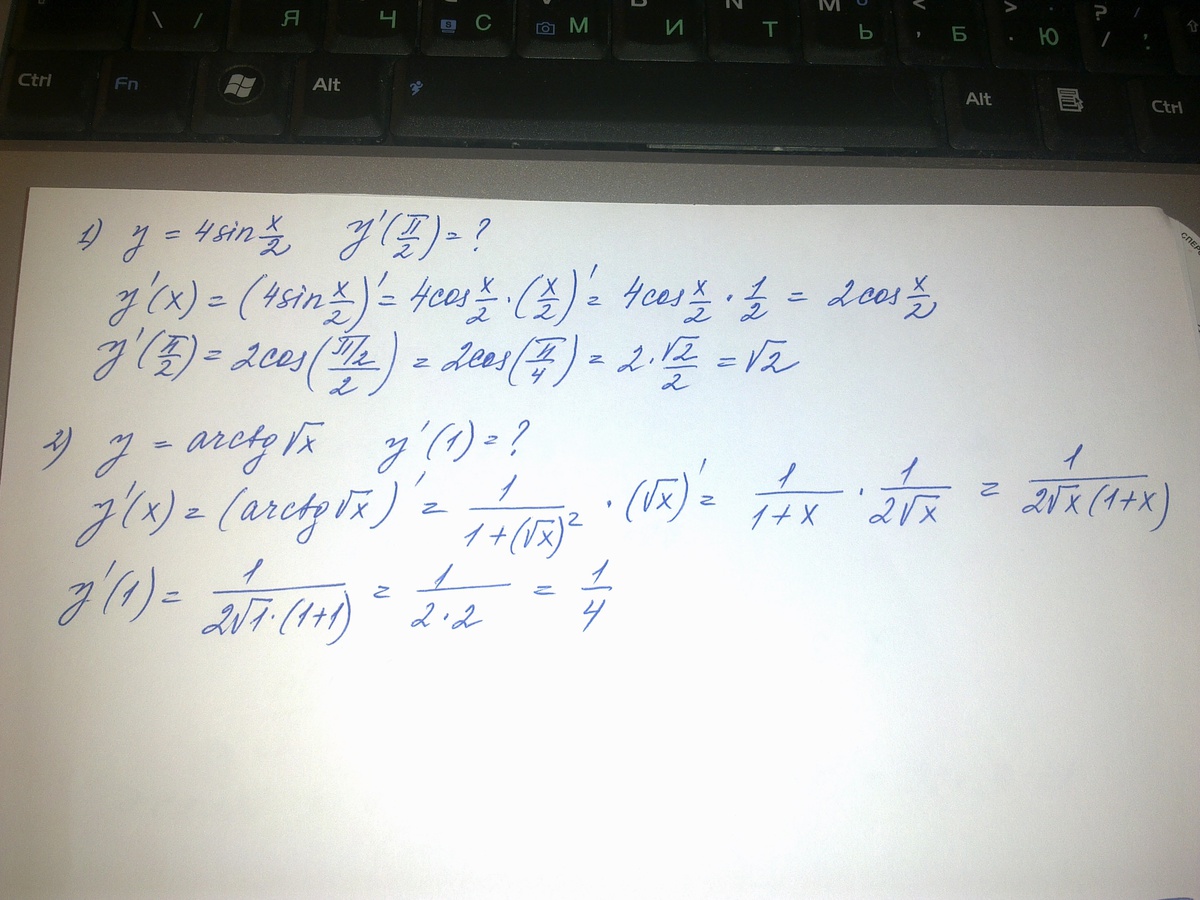 \ / Я Ч S С М И Т Ь < , Б > . Ю ? / .
Ctrl Fn Alt Alt Ctrl
1) y = 4sin x/2 y'(π/2) = ?
y'(x) = (4sin x/2)' = 4cos x/2 · (x/2)' = 4cos x/2 · 1/2 = 2cos x/2
y'(π/2) = 2cos((π/2)/2) = 2cos(π/4) = 2 · √2/2 = √2
2) y = arctg√x y'(1) = ?
y'(x) = (arctg√x)' = 1/(1+(√x)²) · (√x)' = 1/(1+x) · 1/(2√x) = 1/(2√x(1+x))
y'(1) = 1/(2√1·(1+1)) = 1/(2·2) = 1/4